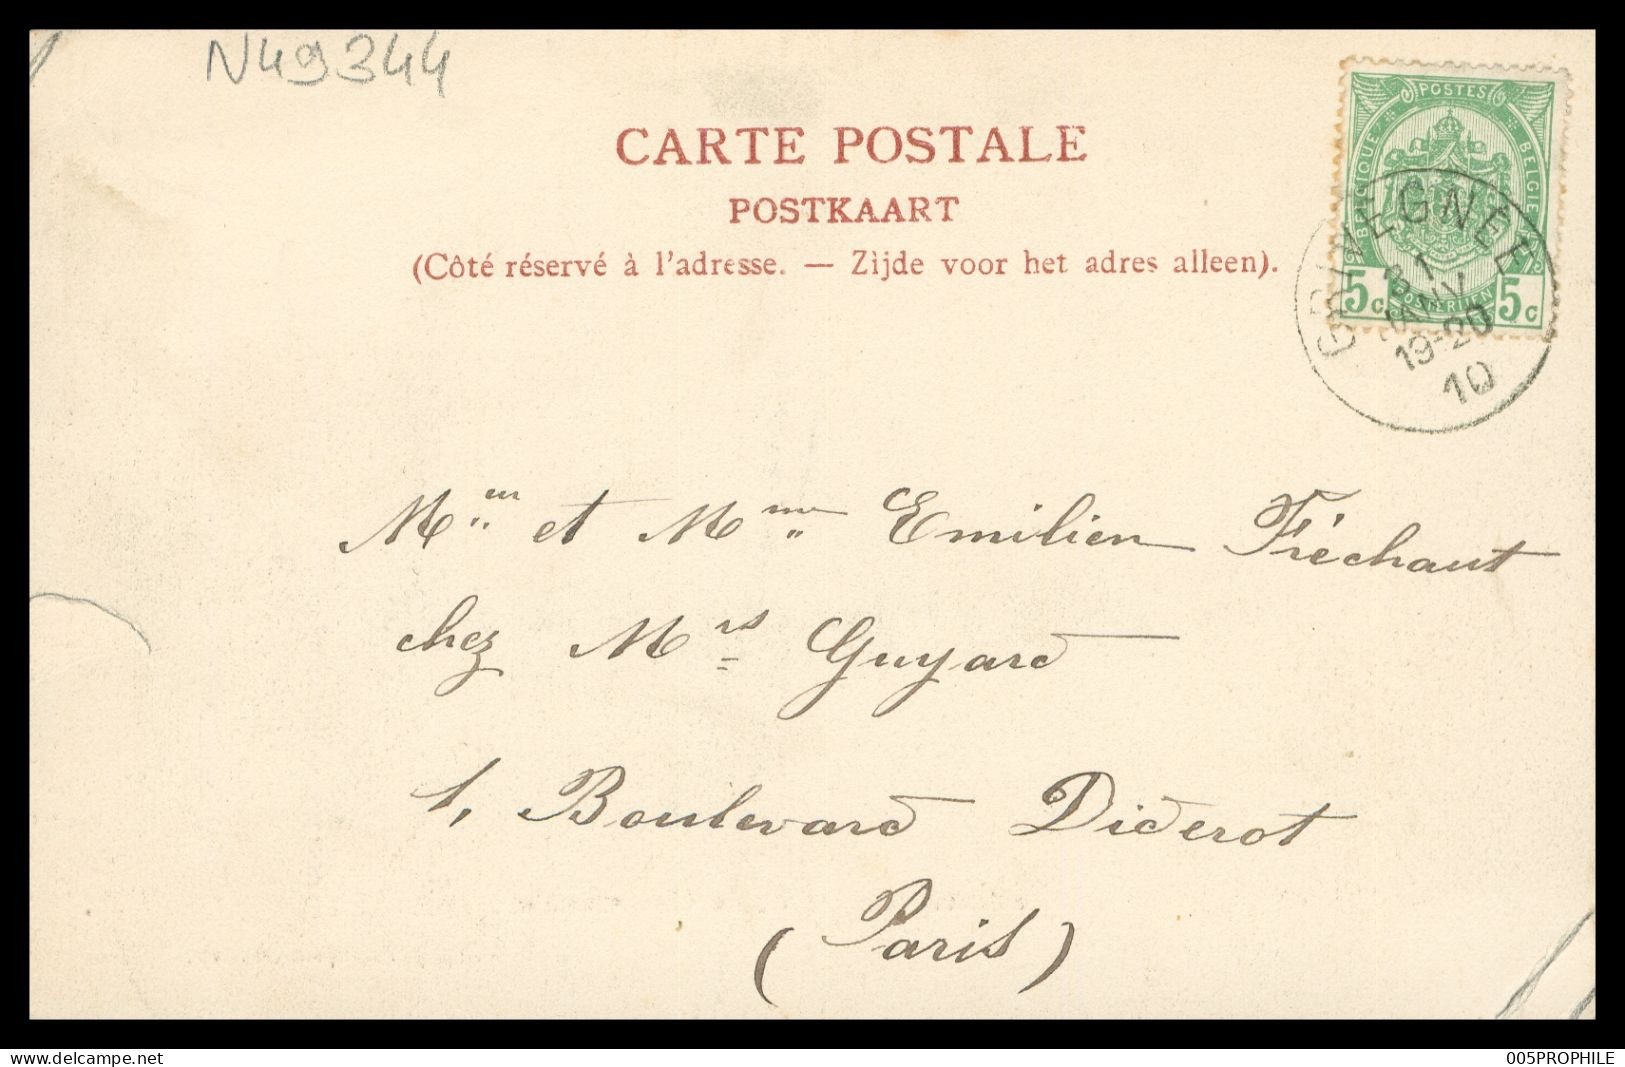 N49344
CARTE POSTALE
POSTKAART
(Côté réservé à l'adresse. — Zijde voor het adres alleen).
POSTES
BELGIQUE
BELGIË
5c
POSTERIJEN
5c
GRIVEGNÉE
31
JANV
19-20
10
Mr et Mme Emilien Fréchaut
chez Mrs Guyard
1, Boulevard Diderot
(Paris)
www.delcampe.net
005PROPHILE